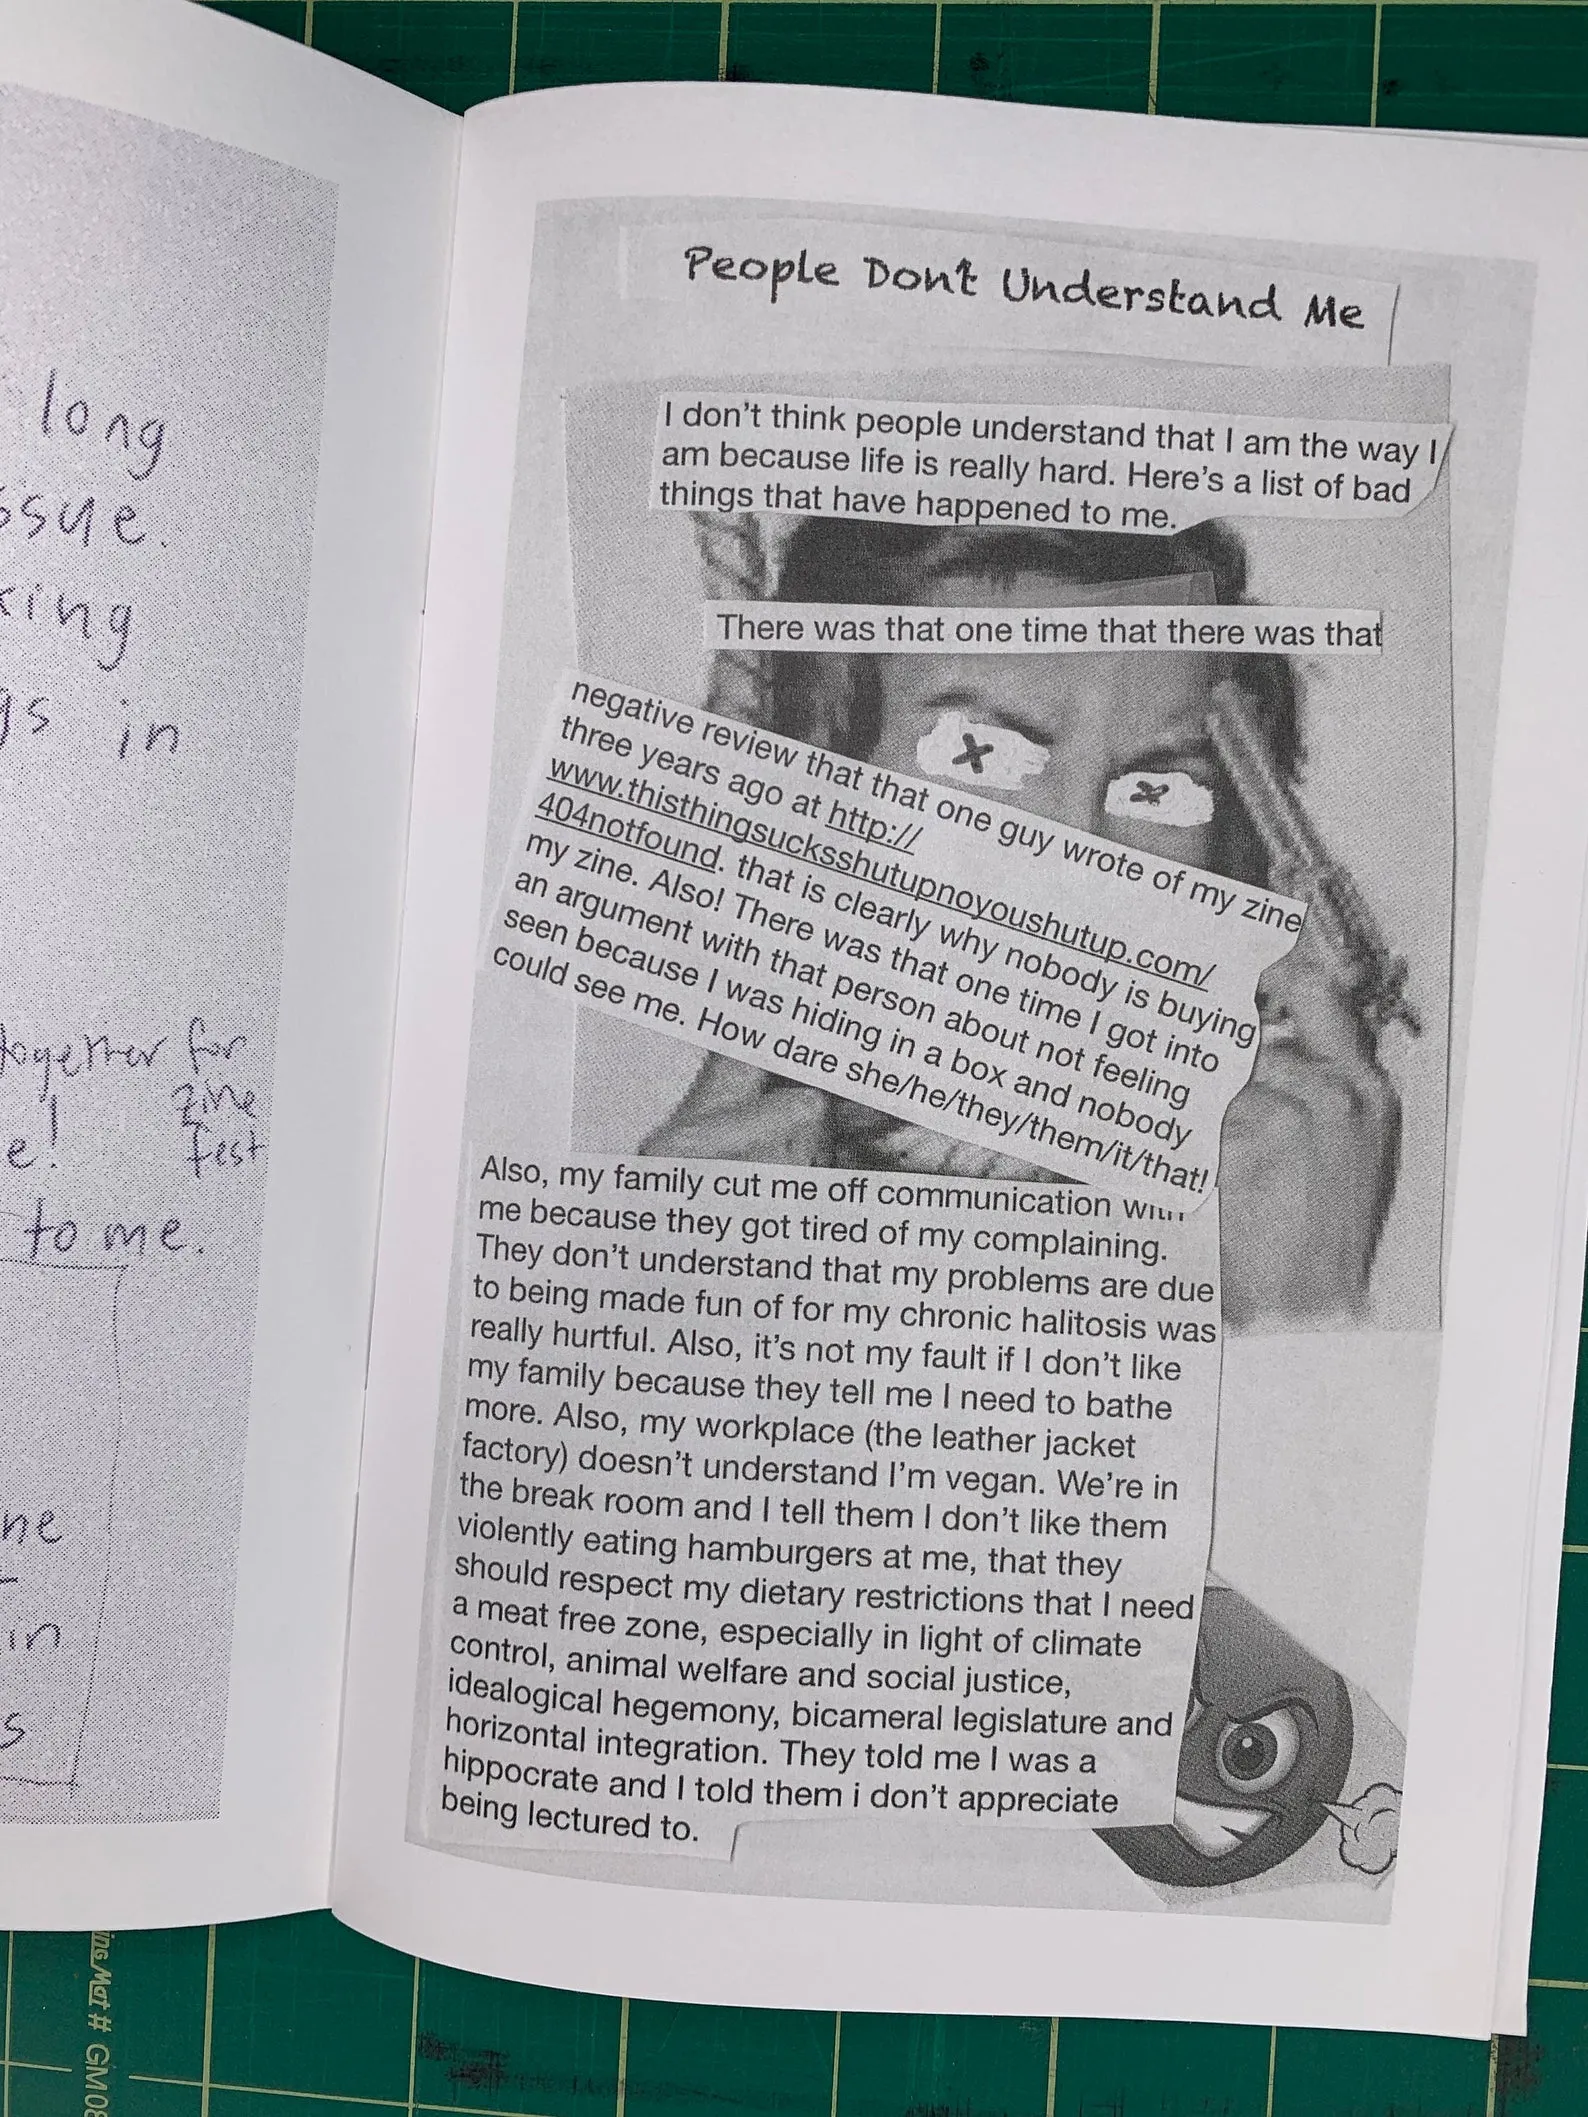 long
ssue.
king
gs in
together for
zine
e! fest
to me.
ne
in
s
People Dont Understand Me
I don't think people understand that I am the way I
am because life is really hard. Here's a list of bad
things that have happened to me.
There was that one time that there was that
negative review that that one guy wrote of my zine
three years ago at http://
www.thisthingsucksshutupnoyoushutup.com/
404notfound. that is clearly why nobody is buying
my zine. Also! There was that one time I got into
an argument with that person about not feeling
seen because I was hiding in a box and nobody
could see me. How dare she/he/they/them/it/that!
Also, my family cut me off communication with
me because they got tired of my complaining.
They don't understand that my problems are due
to being made fun of for my chronic halitosis was
really hurtful. Also, it's not my fault if I don't like
my family because they tell me I need to bathe
more. Also, my workplace (the leather jacket
factory) doesn't understand I'm vegan. We're in
the break room and I tell them I don't like them
violently eating hamburgers at me, that they
should respect my dietary restrictions that I need
a meat free zone, especially in light of climate
control, animal welfare and social justice,
idealogical hegemony, bicameral legislature and
horizontal integration. They told me I was a
hippocrate and I told them i don't appreciate
being lectured to.
ing Mat # GM08